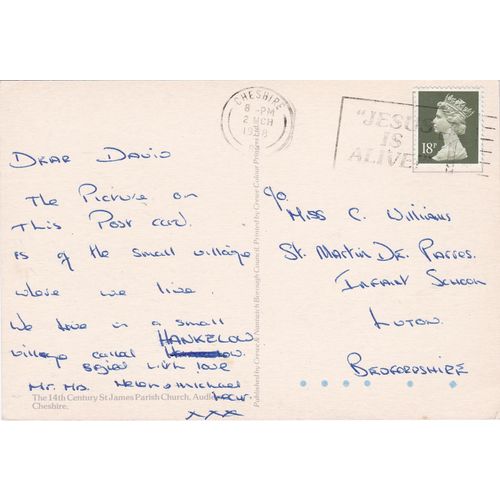 DEAR DAVID
The Picture on
This Post card.
is of the small village
where we live.
We live in a small
HANKELOW
village called
signed with love
Mr. Mrs. Helen & Michael
xxx
The 14th Century St James Parish Church, Audlem
Cheshire.
Published by Crewe & Nantwich Borough Council. Printed by Crewe Colour Printers Ltd
CHESHIRE
8 - PM
2 MCH
"JESUS
IS
ALIVE!"
18P
c/o
MISS C. Williams
St. Martin DE. Porres.
INFANT SCHOOL
LUTON.
BEDFORDSHIRE